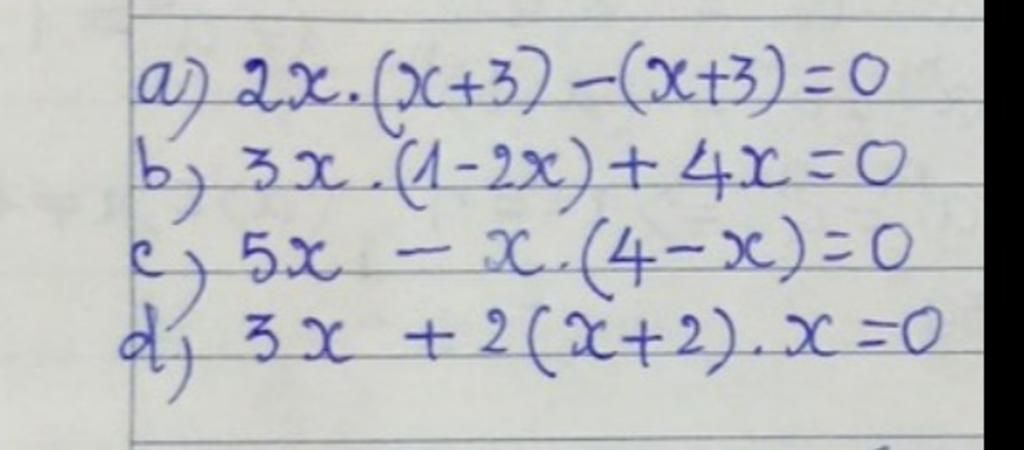 a) 2x.(x+3) -(x+3)=0
b) 3x.(1-2x) + 4x=0
c) 5x - x.(4-x)=0
d) 3x + 2(x+2).x=0